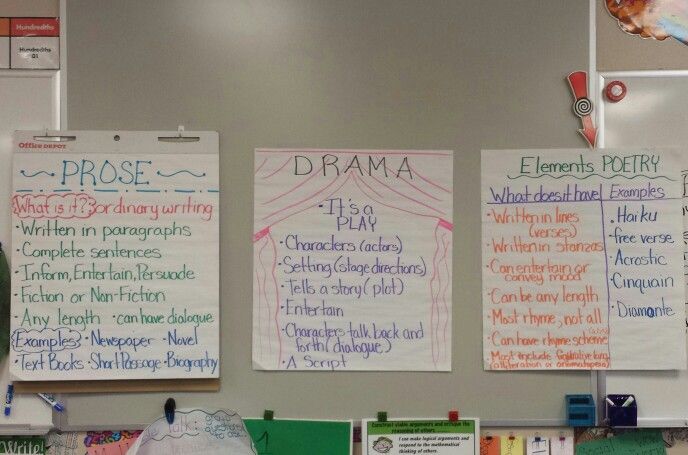 Hundredths
Hundredths
01
Office DEPOT
PROSE
What is it? ordinary writing
· Written in paragraphs
· Complete sentences
· Inform, Entertain, Persuade
· Fiction or Non-Fiction
· Any length · can have dialogue
Examples · Newspaper · Novel
· Text Books · Short Passage · Biography
DRAMA
· It's a
PLAY
· Characters (actors)
· Setting (stage directions)
· Tells a story (plot)
· Entertain
· Characters talk back and
forth (dialogue)
· A Script
Elements POETRY
What does it have
· Written in lines
(verses)
· Written in stanzas
· Can entertain or
convey mood
· Can be any length
· Most rhyme, not all
· Can have rhyme scheme
· Most include
(alliteration or onomatopoeia)
Examples
· Haiku
· free verse
· Acrostic
· Cinquain
· Diamante
Write!
Talk:
Construct viable arguments and critique the
reasoning of others.
I can make logical arguments and
respond to the mathematical
thinking of others.